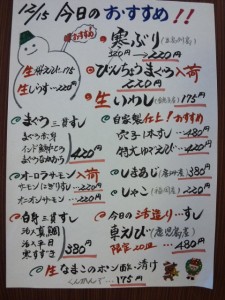 12/15 今日のおすすめ!!
おすすめ
生 175
生しらす…220円
寒ぶり
320円→220円
びんちょうまぐろ入荷
220円
生いわし 175円
まぐろ三貫すし
まぐろ赤身
インド鮪中とろ
まぐろなかおち
420円
自家製仕上!おすすめ
穴子1本すし…480円
特大ゆでえび…320円
オーロラサーモン入荷
サーモン(にぎり)220円
オニオンサーモン…220円
しまあじ 320円
しゃこ 220円
白身三貫すし
活〆真鯛
活〆平目
寒すずき
380円
今日の活造りすし
車えび(鹿児島産)
限定20皿…480円
生なまこのポン酢漬け
ぐんかんで…175円